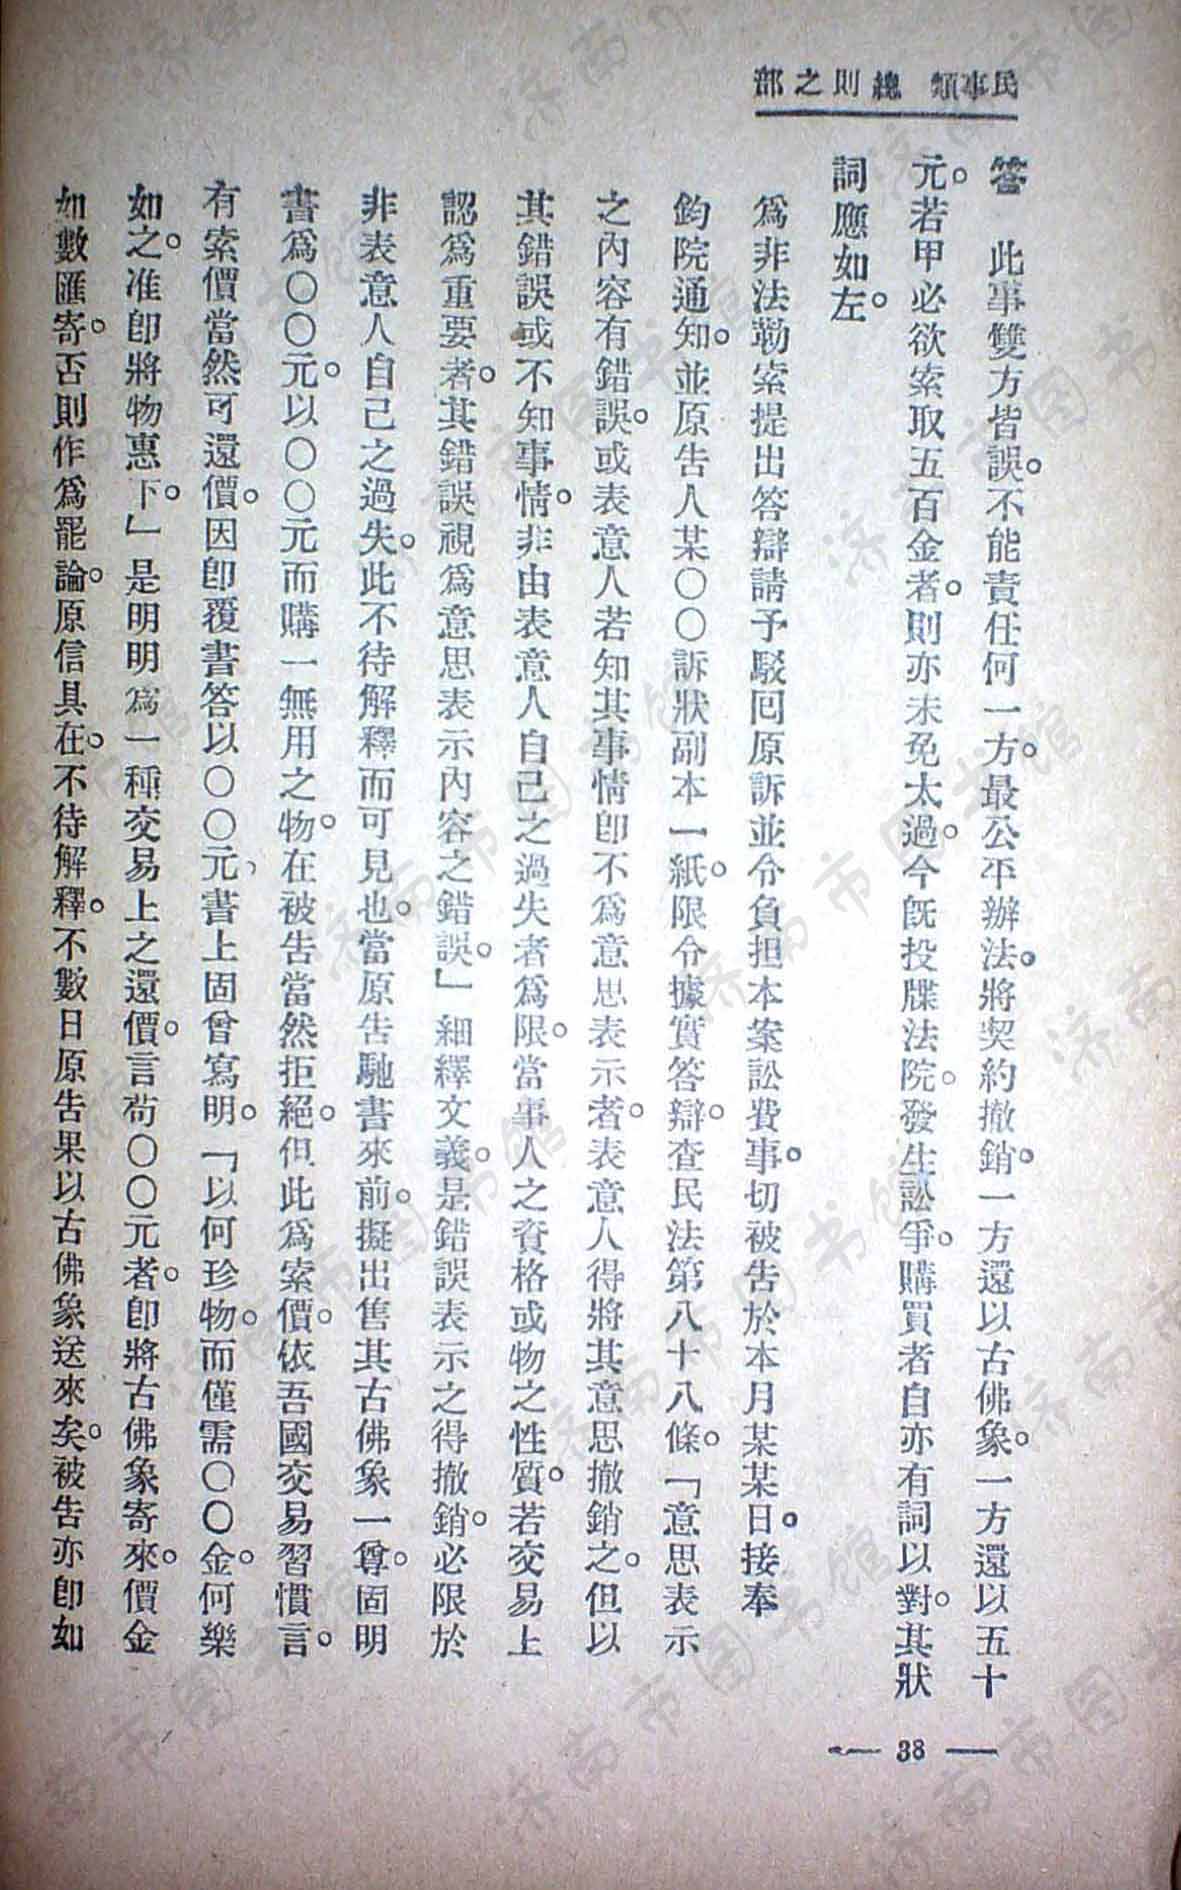 民事類　總則之部
答　此事雙方皆誤。不能責任何一方。最公平辦法。將契約撤銷。一方還以古佛象。一方還以五十
元。若甲必欲索取五百金者。則亦未免太過。今既投牒法院。發生訟爭。購買者自亦有詞以對。其狀
詞應如左。
爲非法勒索提出答辯請予駁回原訴並令負担本案訟費事。切被告於本月某某日。接奉
鈞院通知。並原告人某〇〇訴狀副本一紙。限令據實答辯。查民法第八十八條。「意思表示
之內容有錯誤。或表意人若知其事情卽不爲意思表示者。表意人得將其意思撤銷之。但以
其錯誤或不知事情。非由表意人自己之過失者爲限。當事人之資格或物之性質。若交易上
認爲重要者。其錯誤視爲意思表示內容之錯誤。」細繹文義。是錯誤表示之得撤銷。必限於
非表意人自己之過失。此不待解釋而可見也。當原告馳書來前。擬出售其古佛象一尊。固明
書爲〇〇元。以〇〇元而購一無用之物。在被告當然拒絕。但此爲索價。依吾國交易習慣言。
有索價當然可還價。因卽覆書答以〇〇元、書上固曾寫明。「以何珍物。而僅需〇〇金。何樂
如之。准卽將物惠下。」是明明爲一種交易上之還價。言苟〇〇元者。卽將古佛象寄來。價金
如數匯寄。否則作爲罷論。原信具在。不待解釋。不數日原告果以古佛象送來矣。被告亦卽如
— 38 —
济南市图书馆